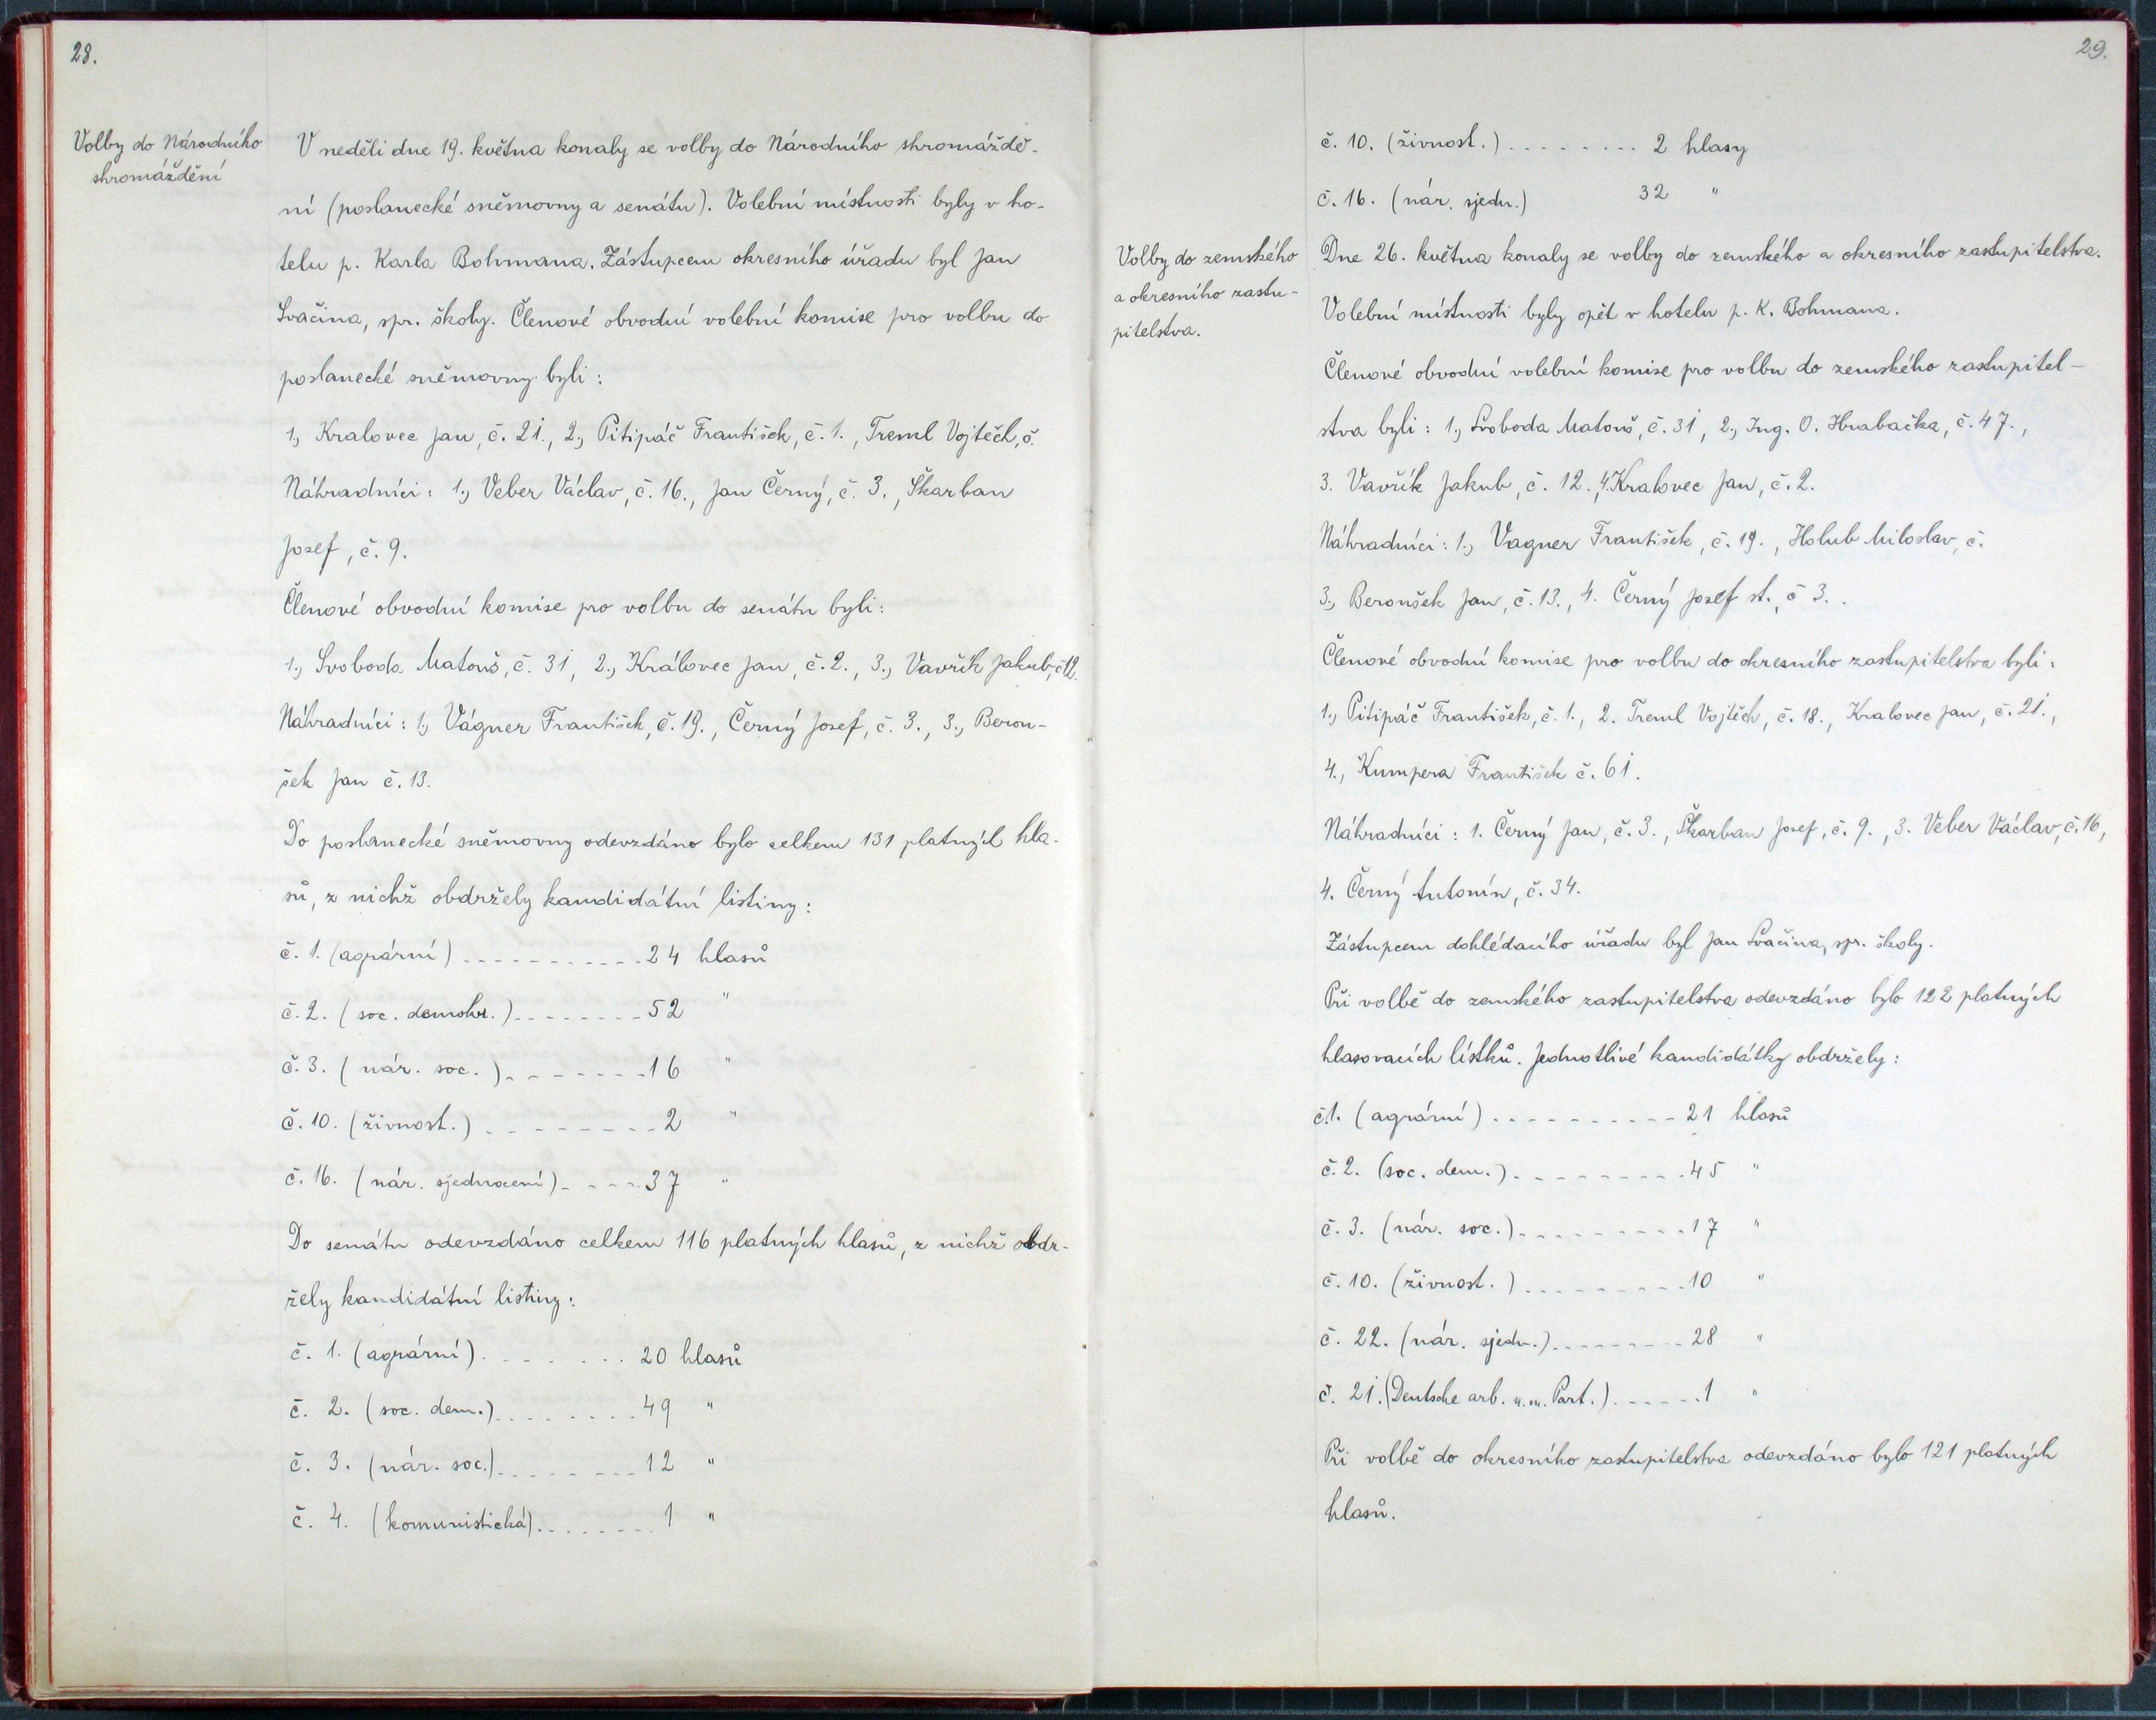 28.
Volby do Národního
shromáždění
V neděli dne 19. května konaly se volby do Národního shromáždě-
ní (poslanecké sněmovny a senátu). Volební místnosti byly v ho-
telu p. Karla Bohmana. Zástupcem okresního úřadu byl Jan
Svačina, spr. školy. Členové obvodní volební komise pro volbu do
poslanecké sněmovny byli:
1., Kralovec Jan, č. 21., 2., Pitipáč František, č. 1., Treml Vojtěch, č.
Náhradníci: 1., Veber Václav, č. 16., Jan Černý, č. 3., Škarban
Josef, č. 9.
Členové obvodní komise pro volbu do senátu byli:
1., Svoboda Matouš, č. 31, 2., Královec Jan, č. 2., 3., Vavřík Jakub, č 12.
Náhradníci: 1., Vágner František, č. 19., Černý Josef, č. 3., 3., Berou-
šek Jan č. 13.
Do poslanecké sněmovny odevzdáno bylo celkem 131 platných hla-
sů, z nichž obdržely kandidátní listiny:
č. 1. (agrární) ............ 24 hlasů
č. 2. (soc. demokr.) ........ 52 "
č. 3. (nár. soc.) ........ 16 "
č. 10. (živnost.) ........ 2 "
č. 16. (nár. sjednocení) ..... 37 "
Do senátu odevzdáno celkem 116 platných hlasů, z nichž obdr-
žely kandidátní listiny:
č. 1. (agrární) ........ 20 hlasů
č. 2. (soc. dem.) ........ 49 "
č. 3. (nár. soc.) ........ 12 "
č. 4. (komunistická) ........ 1 "
29.
č. 10. (živnost.) ......... 2 hlasy
č. 16. (nár. sjedn.) 32 "
Volby do zemského
a okresního zastu-
pitelstva.
Dne 26. května konaly se volby do zemského a okresního zastupitelstva.
Volební místnosti byly opět v hotelu p. K. Bohmana.
Členové obvodní volební komise pro volbu do zemského zastupitel-
stva byli: 1., Svoboda Matouš, č. 31, 2., Ing. O. Hrabačka, č. 47.,
3. Vavřík Jakub, č. 12., 4. Kralovec Jan, č. 2.
Náhradníci: 1., Vagner František, č. 19., Holub Miloslav, č.
3., Beroušek Jan, č. 13., 4. Černý Josef st., č 3..
Členové obvodní komise pro volbu do okresního zastupitelstva byli:
1., Pitipáč František, č. 1., 2. Treml Vojtěch, č. 18., Kralovec Jan, č. 21.,
4., Kumpera František č. 61.
Náhradníci: 1. Černý Jan, č. 3., Škarban Josef, č. 9., 3. Veber Václav, č. 16,
4. Černý Antonín, č. 34.
Zástupcem dohlédacího úřadu byl Jan Svačina, spr. školy.
Při volbě do zemského zastupitelstva odevzdáno bylo 122 platných
hlasovacích lístků. Jednotlivé kandidátky obdržely:
č. 1. (agrární) .......... 21 hlasů
č. 2. (soc. dem.) ......... 45 "
č. 3. (nár. soc.) ......... 17 "
č. 10. (živnost.) ......... 10 "
č. 22. (nár. sjedn.) ........ 28 "
č. 21. (Deutsche arb. u. m. Part.) ...... 1 "
Při volbě do okresního zastupitelstva odevzdáno bylo 121 platných
hlasů.